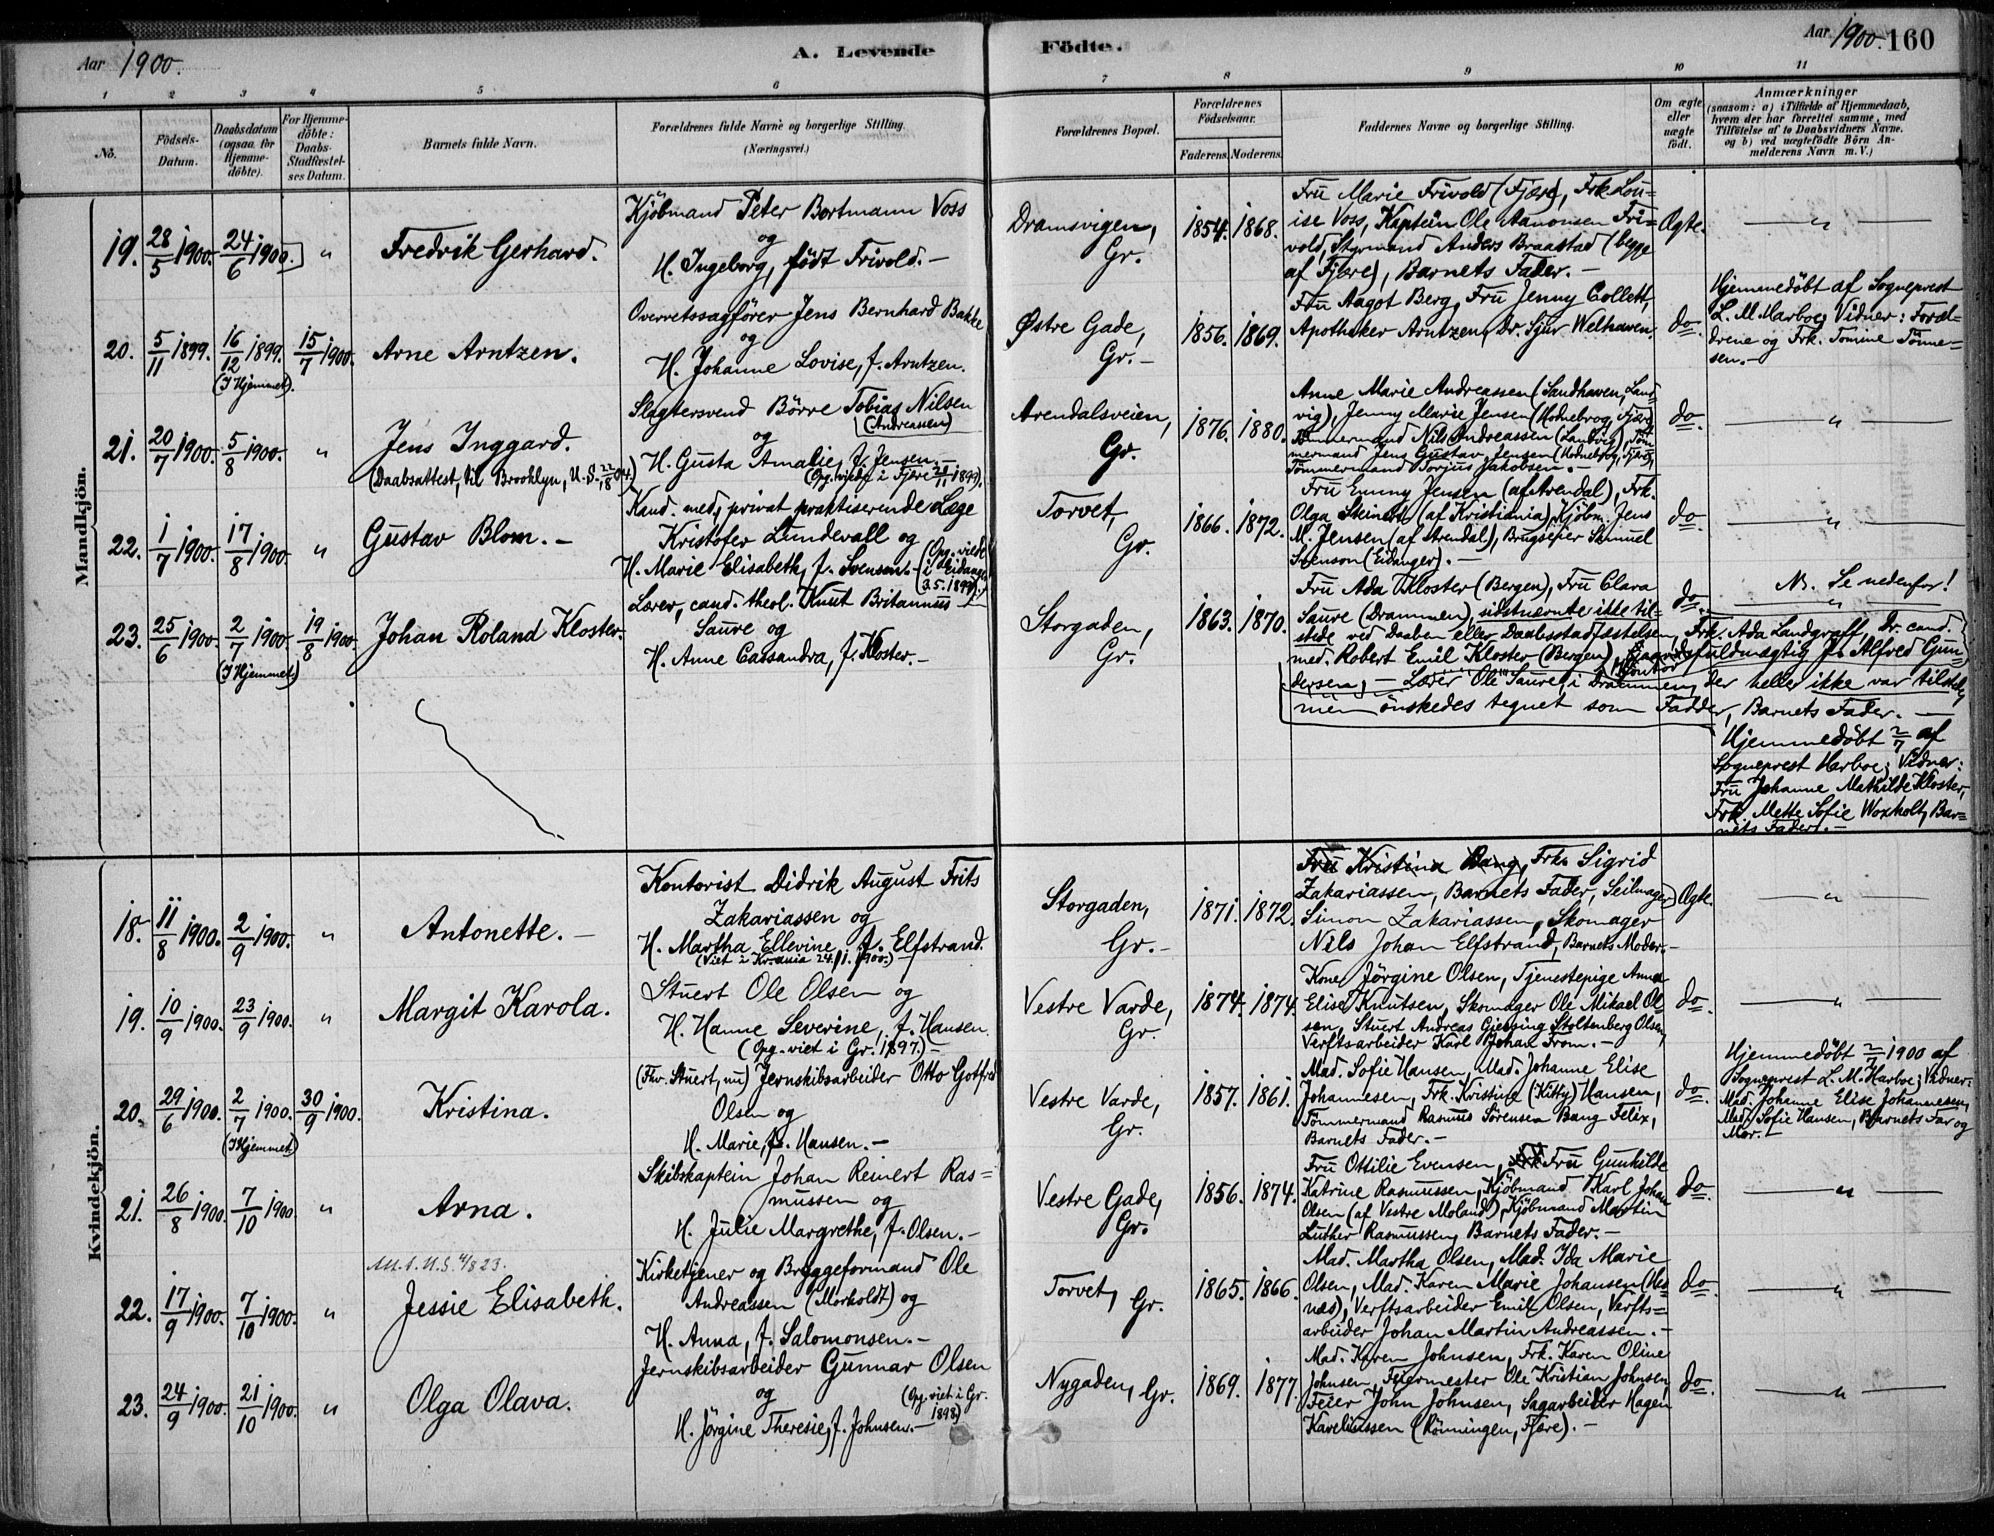 Aar 1900.
A. Levende
Födte.
Aar 1900. 160
1 2 3 4 5 6 7 8 9 10 11
Nö.
Födsels-
Datum.
Daabsdatum
(ogsaa for
Hjemme-
döbte).
For Hjemme-
döbte:
Daabs-
Stadfæstel-
ses Datum.
Barnets fulde Navn.
Forældrenes fulde Navne og borgerlige Stilling.
(Næringsvei.)
Forældrenes Bopæl.
Forældrenes
Födselsaar.
Faderens. Moderens.
Faddernes Navne og borgerlige Stilling.
Om ægte
eller
uægte
født.
Anmærkninger
(saasom: a) i Tilfælde af Hjemmedaab,
hvem der har forrettet samme, med
Tilföielse af to Daabsvidners Navne.
og b) ved uægtefödte Börn An-
melderens Navn m. V.)
Mandkjön.
19. 28/5 1900. 24/6 1900. " Fredrik Gerhard.
Kjöbmand Peter Bortmann Voss
og
H. Ingeborg, födt Frivold. -
Dramsvigen,
Gr.
1854. 1868.
Fru Marie Frivold (Fjære), Frk. Lou-
ise Voss, Kaptein Ole Aanonsen Fri-
vold, Styrmand Anders Braastad (begge
af Fjære), Barnets Fader. -
Ægte.
"
20. 5/11 1899. 16/12 1899. (I Hjemmet). 15/7 1900. Arne Arntzen.
Overretssagförer Jens Bernhard Bakke
og
H. Johanne Lovise, f. Arntzen.
Østre Gade,
Gr. -
1856. 1869.
Fru Aagot Berg, Fru Jenny Collett,
Apotheker Arntzen, dr. Sjur Welhaven.
do.
Hjemmedöbt af Sogneprest
L. M. Harboe; Vidner: Foræl-
drene og Frk. Tomine Tönne-
sen. -
21. 20/7 1900. 5/8 1900. " Jens Inggard.
(Daabsattest, til Brooklyn, U. S. 22/8 04.)
Slagtersvend Börre Tobias Nilsen
(Andreassen)
og
H. Gusta Amalie, f. Jensen. -
(Opg. viede i Fjære 1899).
Arendalsveien,
Gr.
1876. 1880.
Anne Marie Andreassen (Sandhaven, Land-
vig), Jenny Marie Jensen (Hodnebrog, Fjære)
Tömmermand Nils Andreassen (Landvig), Töm-
mermand Jens Gustav Jensen (Hodnebrog, Fjære),
Tömmermand Torjus Jakobsen. -
do.
"
22. 1/7 1900. 17/8 1900. " Gustav Blom. -
Kand. med., privat praktiserende Læge
Kristofer Lundevall og
H. Marie Elisabeth, f. Svensen. - (Opg. viede
i Eidanger
3.5.1899).
Torvet,
Gr.
1866. 1872.
Fru Emmy Jensen (af Arendal), Frk.
Olga Steinert (af Kristiania), Kjöbm. Jens
M. Jensen (af Arendal), Brugseier Samuel
Svenson (Eidanger). -
do.
"
23. 25/6 1900. 2/7 1900. (I Hjemmet) 19/8 1900. Johan Roland Kloster.
Lærer, cand. theol. Knut Britannus
Saure og
H. Anne Cassandra, f. Kloster. -
Storgaden,
Gr.
1863. 1870.
Fru Ada Kloster (Bergen), Fru Clara
Saure (Drammen), sidstnævnte ikke til-
stede ved Daaben eller Daabsstadfæstelsen, Frk. Ada Landgraff, Dr. cand.
med. Robert Emil Kloster (Bergen), fuldmægtig Alfred Gun-
dersen, - Lærer Ole Saure, i Drammen, der heller ikke var tilstede,
men önskedes tegnet som Fadder, Barnets Fader. -
do.
N. Se nedenfor!
"
Hjemmedöbt 2/7 af
Sogneprest Harboe; Vidner:
Fru Johanne Mathilde Kloster,
Frk. Mette Sofie Woxholt, Bar-
nets Fader. -
Kvindekjön.
18. 11/8 1900. 2/9 1900. " Antonette. -
Kontorist Didrik August Frits
Zakariassen og
H. Martha Ellevine, f. Elfstrand.
(Viet i Kr.ania 24. 1. 1900.)
Storgaden,
Gr. -
1871. 1872.
Fru Kristina Bang, Frk. Sigrid
Zakariassen, Barnets Fader, Seilmager
Simon Zakariassen, Skomager
Nils Johan Elfstrand, Barnets Moder. -
Ægte.
"
19. 10/9 1900. 23/9 1900. " Margit Karola.
Stuert Ole Olsen og
H. Hanne Severine, f. Hansen.
(Opg. viet i Gr. 1897.) -
Vestre Varde,
Gr.
1874. 1874.
Kone Jörgine Olsen, Tjenestepige Anna
Elise Knutsen, Skomager Ole Mikael Ol-
sen, Stuert Andreas Gjersing Stoltenberg Olsen,
Verftsarbeider Karl Johan From. -
do.
"
20. 29/6 1900. 2/7 1900. (I Hjemmet) 30/9 1900. Kristina.
(Fhv. Stuert, nu) Jernskibsarbeider Otto Gotfred
Olsen og
H. Marie, f. Hansen. -
Vestre Varde,
Gr.
1857. 1861.
Mad. Sofie Hansen, Mad. Johanne Elise
Johannesen, Frk. Kristine (Kitty) Hansen,
Tömmermand Rasmus Sörensen Bang Felix,
Barnets Fader. -
do.
Hjemmedöbt 2/7 1900 af
Sogneprest L. M. Harboe; Vidner:
Mad. Johanne Elise Johannesen,
Mad. Sofie Hansen, Barnets Far og
Mor. -
21. 26/8 1900. 7/10 1900. " Arna.
Skibskaptein Johan Reinert Ras-
mussen og
H. Julie Margrethe, f. Olsen. -
Vestre Gade,
Gr.
1856. 1874.
Fru Ottilie Evensen, Fru Gunhilde
Katrine Rasmussen, Kjöbmand Karl Johan
Olsen (af Vestre Moland), Kjöbmand Martin
Luther Rasmussen, Barnets Fader. -
do.
"
Att. t. U.S. 4/8 23.
22. 17/9 1900. 7/10 1900. " Jessie Elisabeth.
Kirketjener og Bryggeformand Ole
Andreassen (Morholdt) og
H. Anna, f. Salomonsen. -
Torvet, Gr.
1865. 1866.
Mad. Martha Olsen, Mad. Ida Marie
Olsen, Mad. Karen Marie Johansen (Hes-
næs), Verftsarbeider Emil Olsen, Verfts-
arbeider Johan Martin Andreassen. -
do.
"
23. 24/9 1900. 21/10 1900. " Olga Olava.
Jernskibsarbeider Gunnar Olsen
og (Opg. viet i Gr.
1898)
H. Jörgine Theresie, f. Johnsen. -
Nygaden, Gr.
1869. 1877.
Mad. Karen Johnsen, Frk. Karen Oline
Johnsen, Feiermester Ole Kristian Johnsen,
Feier John Johnsen, Sagarbeider Hagen
Kareliussen (Rönningen, Fjære). -
do.
"